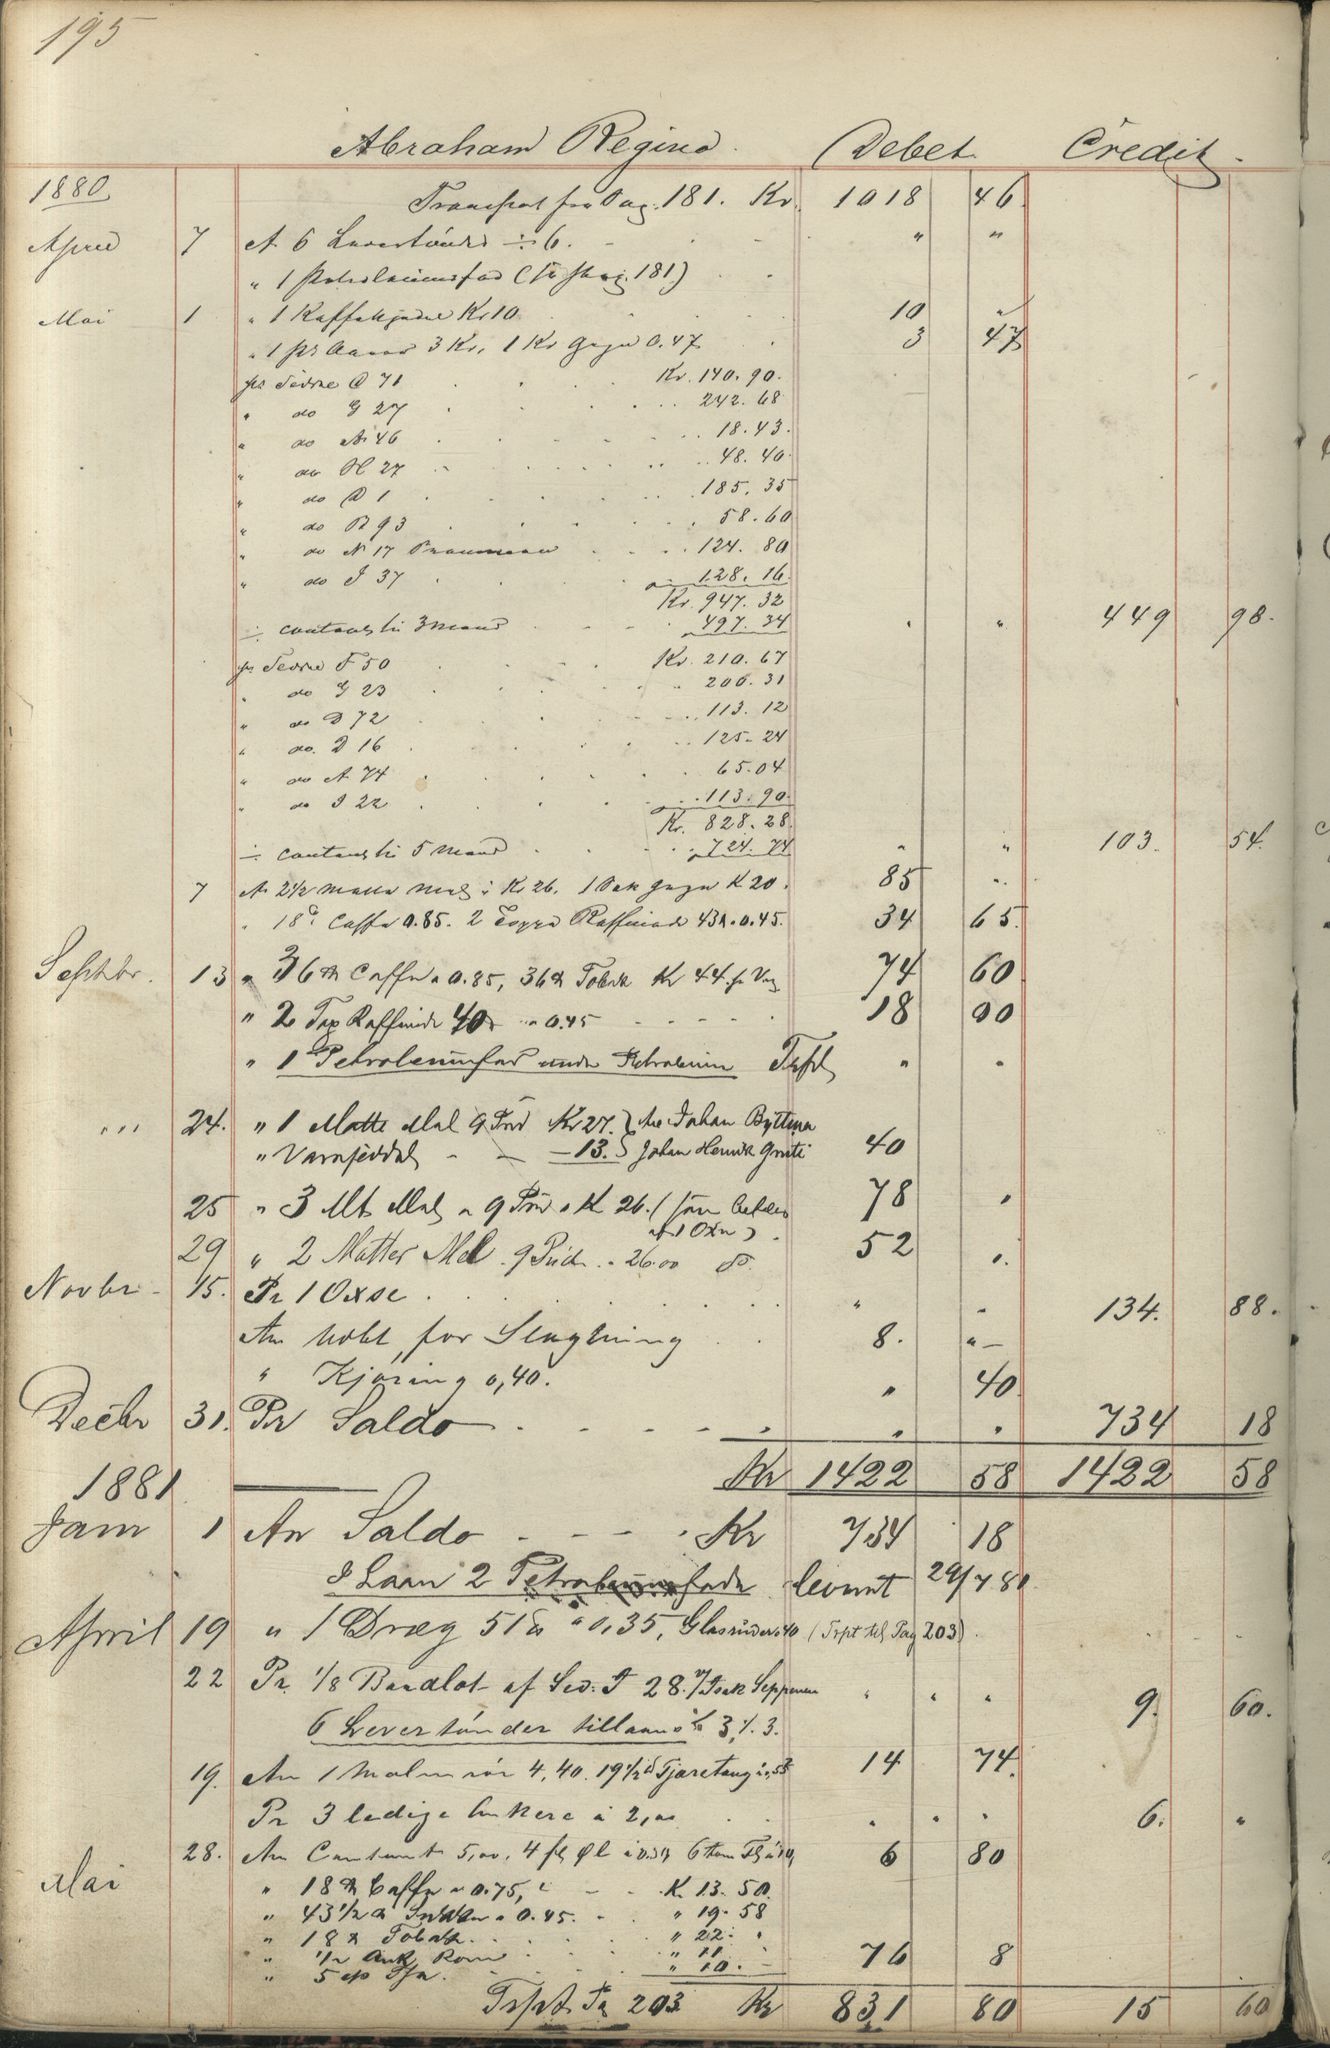 195
Abraham Regina. Debet. Credit.
1880 Transport fra Pag. 181. Kr. 1018 46.
April 7 An 6 Levertønder ÷ 6. " "
" 1 Petroleumsfad (Fr pag. 181)
Mai 1 " 1 Kaffekjedel Kr 10 10 "
" 1 pr Aarer 3 Kr. 1 Kr Garn 0.47 3 47
pr Sedne C 71 Kr. 140. 90.
" do G 27 242. 68
" do A 46 18. 43.
" do H 27 48. 40.
" do D 1 185. 35
" do B 93 58. 60
" do N 17 124. 80
" do I 37 128. 16.
Kr. 947. 32
÷ contant til 3 Mand 497. 34 " " 449 98.
pr Sedne F 50 Kr. 210. 67
" do G 23 200. 31
" do D 72 113. 12
" do. D 16 125. 24
" do A 74 65. 04
" do I 22 113. 90.
Kr. 828. 28.
÷ contant til 5 Mand 724. 74 " " 103. 54.
7 An 2 1/2 Matte Mel à Kr 26. 1 K 20. 85 "
" 18 Caffe 0.85. 2 Toppe Raffinade 43 0.45. 34 65.
Septbr. 13 " 36 Caffe a 0.85, 36 Tobak Kr 44. pr Vog 74 60
" 2 Top Raffinade 40 a 0.45 18 00
" 1 Petroleumsfad under Petroleum Trspt " "
" " " 24. " 1 Matte Mel 9 Pud Kr 27. Johan Byttma
" 13. Johan Henrik 40
25 " 3 Mt Mel a 9 Pud a K 26. 78 "
1 Oxe)
29 " 2 Matter Mel 9 Pud a 26.00 do. 52 "
Novbr 15. Pr 1 Oxse " " 134. 88.
An bobt, for Slagtning 8. "
" Kjøring 0,40. " 40
Decbr 31. Pr Saldo " " 734 18
Kr 1422 58 1422 58
1881
Janr 1 An Saldo Kr 734 18
I Laan 2 Petroleumsfade leveret 29/7 80
April 19 " 1 Dræg 51 a 0,35, Glasruder 40 (Trpt til Pag 203)
22 Pr. 1/8 Baadlot af Sed: I 28. v/ Isak Seppenen " " " 9. 60.
6 Levertønder tillaans 3 ./. 3.
19. An 1 Malmrør 4,40. 19 1/2 Tjæretoug 14 74.
Pr 3 ledige Ankere à 2,00 " " " 6. "
28. An Contant 5,00, 4 fl Øl 6 tom Fl 6 80
Mai " 18 Caffe a 0.75, K. 13. 50.
" 43 1/2 Sukker a 0.45. " 19. 58
" 18 Tobak " 22. "
" 1/2 Ank Rom " 11
" 5 " 10. " 76 8
Trspt Pa 203 Kr 831 80 15 60